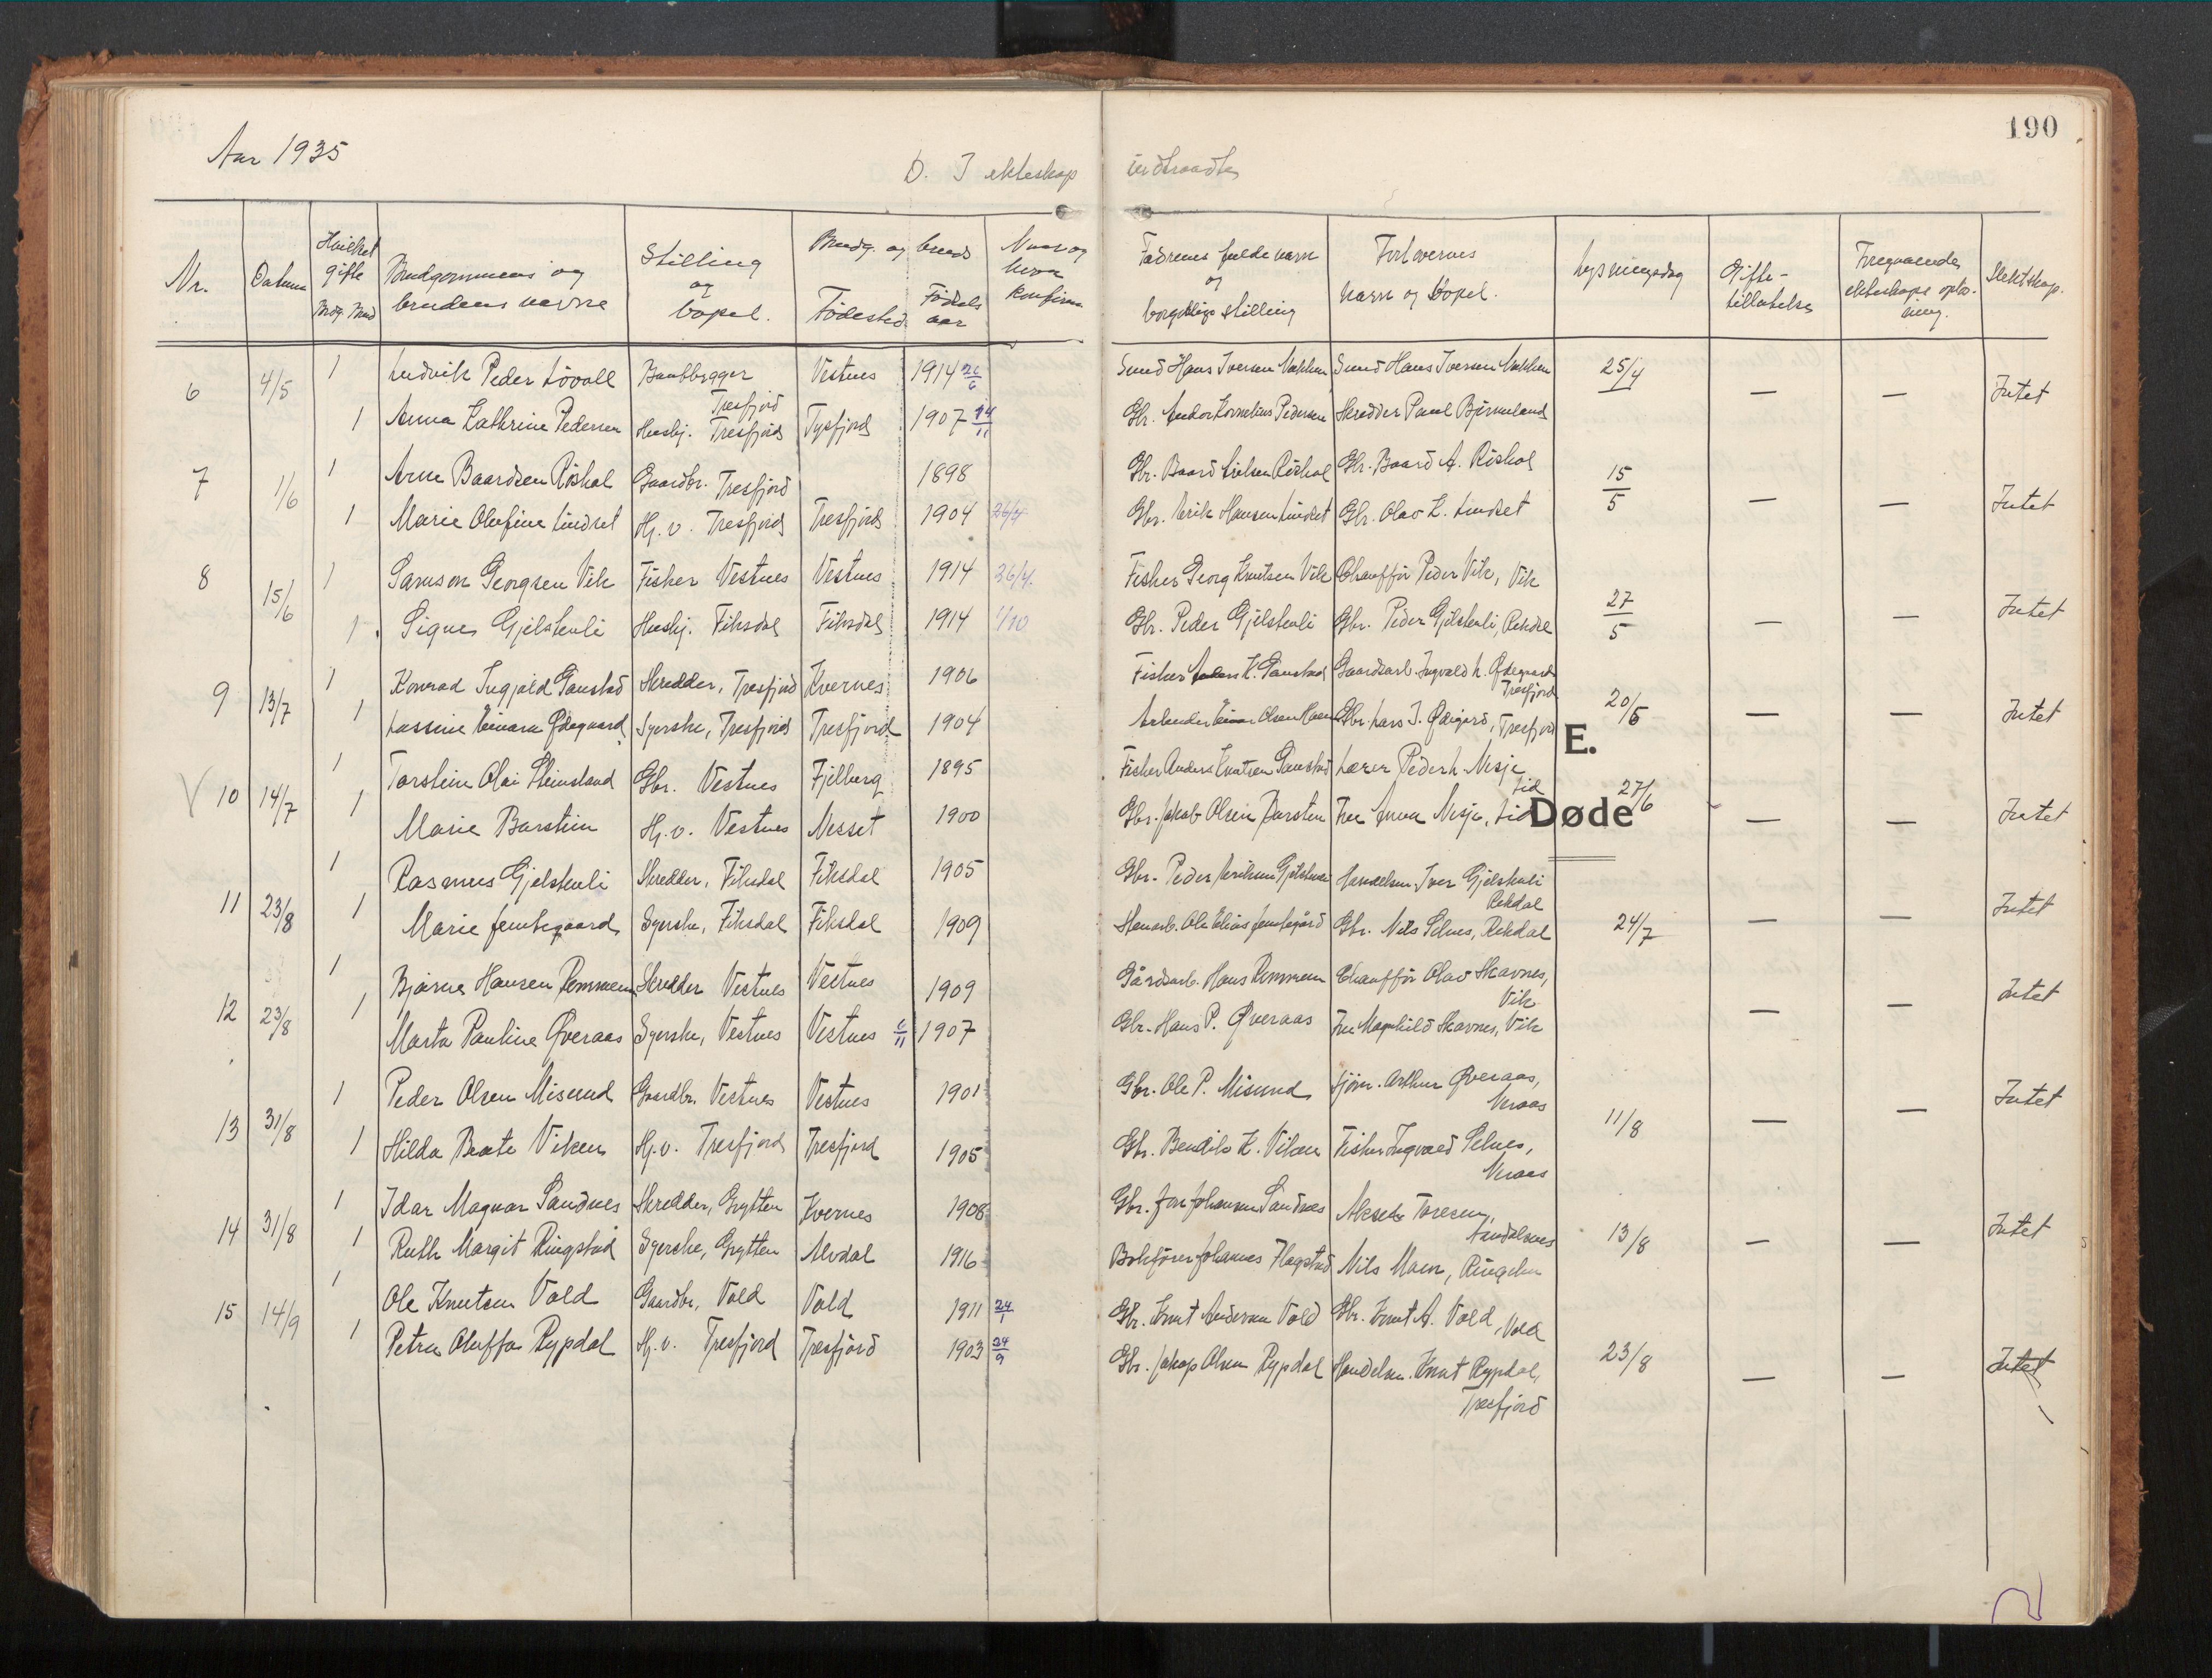 190
Aar 1935
D. I ekteskap indtraadte
Nr. Datum Hvilket gifte Brdg. Brud Brudgommens og brudens navne Stilling og bopel. Brudg. og bruds Fødested Fødsels aar Naar og hvor konfirm
Fædrenes fulde navn og borgerlige stilling Forlovernes navn og bopel. Lysningsdag Gifte-tillatelse Foregaaende ekteskaps opløsning. Slektskap.
6 4/5 1 Ludvik Peder Løvoll Baatbygger Tresfjord Vestnes 1914 26/6 Smed Hans Iversen Smed Hans Iversen 25/4 — — Intet
1 Anna Kathrine Pedersen Husbj. Tresfjord Tysfjord 1907 14/11 Gbr. Andor Kornelius Pedersen Skredder Paul Bjermeland
7 1/6 1 Arne Baardsen Riskol Gaardbr. Tresfjord 1898 Gbr. Baard Riskol Gbr. Baard A. Riskol 15/5 — — Intet
1 Marie Olufine Lindset Hj. v. Tresfjord Tresfjord 1904 Gbr. Erik Hansen Lindset Gbr. Olav K. Lindset
8 15/6 1 Samson Georgsen Vik Fisker Vestnes Vestnes 1914 26/4 Fisker Georg Knutsen Vik Chauffør Peder Vik, Vik 27/5 — — Intet
1 Signe Gjelstenli Husbj. Fiksdal Fiksdal 1914 1/10 Gbr. Peder Gjelstenli Gbr. Peder Gjelstenli, Rekdal
9 13/7 1 Konrad Ingjald Gaustad Skredder, Tresfjord Kvernes 1906 Fisker K. Gaustad Gaardsarb. Ingvald L. Ødegaard Tresfjord 20/6 — — Intet
1 Lassine Ødegaard Syerske, Tresfjord Tresfjord 1904 Arbeider Olsen Gbr. Lars J. Ødegård, Tresfjord
E.
Døde
V 10 14/7 1 Torstein Olai Steinsland Gbr. Vestnes Fjelberg 1895 Fisker Anders Knutsen Gaustad Lærer Peder L. Nesje Lid 27/6 — — Intet
1 Marie Barstein Hj. v. Vestnes Nesset 1900 Gbr. Jakob Olsen Barsten Fru Anna Nesje, Lid
11 23/8 1 Rasmus Gjelstenli Skredder, Fiksdal Fiksdal 1905 Gbr. Peder Eriksen Gjelstenli Handelsm. Iver Gjelstenli Rekdal 24/7 — — Intet
1 Marie Jemtegaard Syerske, Fiksdal Fiksdal 1909 Stenarb. Ole Elias Jemtegård Gbr. Nils Selnes, Rekdal
12 23/8 1 Bjarne Hansen Remmem Skredder Vestnes Vestnes 1909 Gårdsarb. Hans Remmem Chauffør Olav Skavnes, Vik — — Intet
1 Marta Pauline Øveraas Syerske, Vestnes Vestnes 6/11 1907 Gbr. Hans P. Øveraas Fru Magnhild Skavnes, Vik
13 31/8 1 Peder Olsen Misund Gaardbr. Vestnes Vestnes 1901 Gbr. Ole P. Misund Sjøm. Arthur Øveraas, Veraas 11/8 — — Intet
1 Hilda Beate Viken Hj. v. Tresfjord Tresfjord 1905 Gbr. Bendik K. Viken Fisker Ingvald Selnes, Veraas
14 31/8 1 Idar Magnar Sandnes Skredder, Grytten Kvernes 1908 Gbr. Jon Johansen Sandnes Aksel Toresen, Åndalsnes 13/8 — — Intet
1 Ruth Margit Ringstad Syerske, Grytten Alvdal 1916 Bokfører Johannes Flagstad Nils Moen,
15 14/9 1 Ole Knutsen Vold Gaardbr, Vold Vold 1911 24/1 Gbr. Knut Andersen Vold Gbr. Knut A. Vold, Vold 23/8 — — Intet
1 Petra Oluffa Rypdal Hj. v. Tresfjord Tresfjord 1903 24/9 Gbr. Jakop Olsen Rypdal Handelsm. Knut Rypdal, Tresfjord